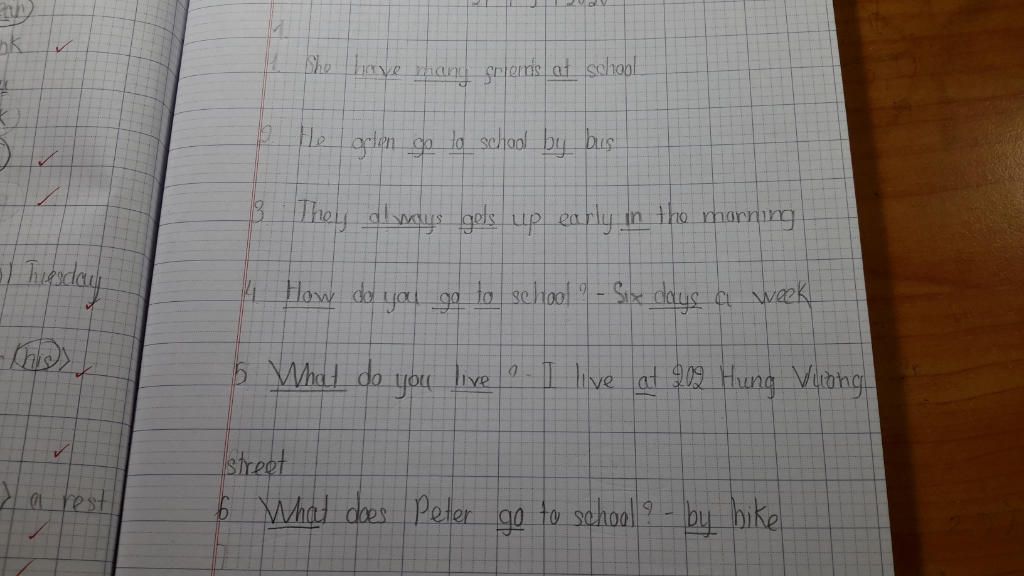 nk
) Tuesday
his
) a rest
1
1. She have many friends at school
2. He often go to school by bus
3. They always gets up early in the morning
4. How do you go to school? - Six days a week
5 What do you live? - I live at 202 Hung Vuong
street
6 What does Peter go to school? - by bike